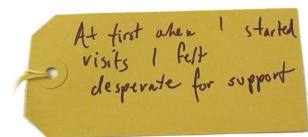 At first when I started
visits I felt
desperate for support